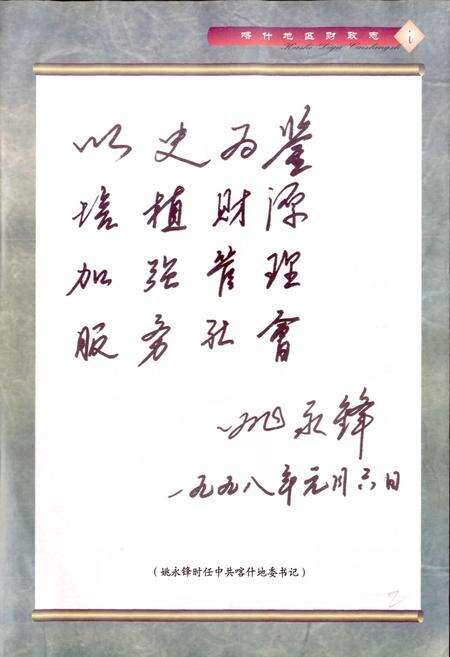 喀什地区财政志
Kashi Diqu Caizhengzhi
i
以史为鉴
培植财源
加强管理
服务社會
姚永鋒
一九九八年元月六日
(姚永锋时任中共喀什地委书记)
2